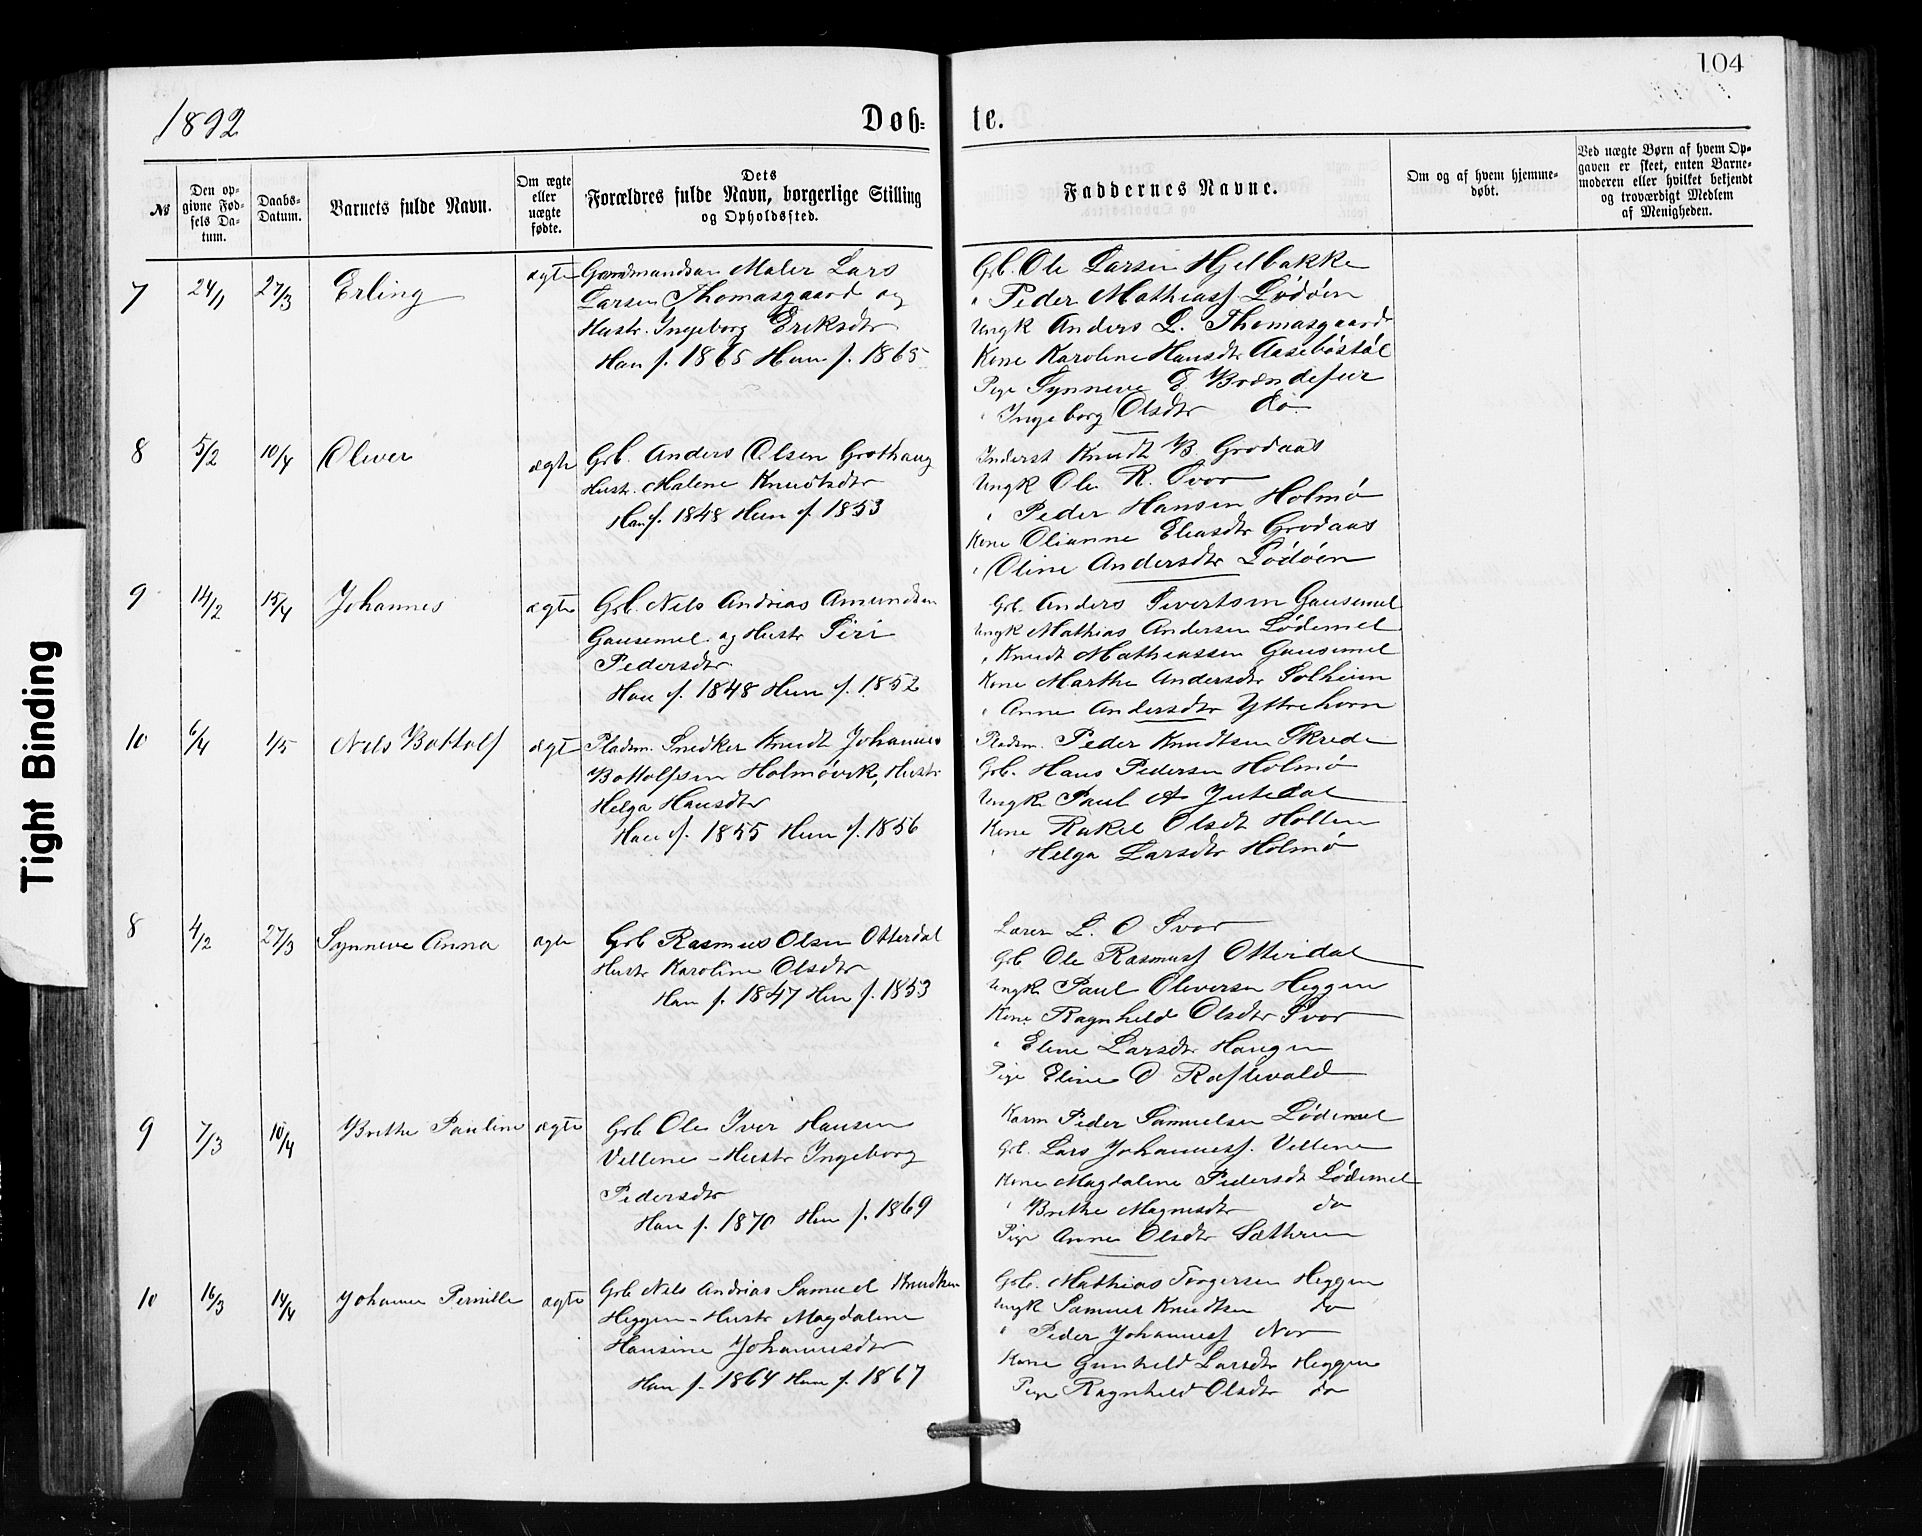 104
1892
Døb- te.
№
Den opgivne Fødsels Datum.
Daabs-Datum.
Barnets fulde Navn.
Om ægte eller uægte fødte.
Dets Forældres fulde Navn, borgerlige Stilling og Opholdssted.
Faddernes Navne.
Om og af hvem hjemmedøbt.
Ved uægte Børn af hvem Opgaven er skeet, enten Barnemoderen eller hvilket bekjendt og troværdigt Medlem af Menigheden.
7 24/1 27/3 Erling ægte Gaardmandsøn Maler Lars
Larsen Thomasgaard og
Hustr. Ingeborg Eriksdtr
Han f. 1865 Hun f. 1865
Grb. Ole Larsen Hjelbakke
" Peder Mathiasf Lødøen
Ungk Anders L. Thomasgaard
Kone Karoline Hansdtr Aasebøstøl
Pige Synneve E. Brændefur
" Ingeborg Olsdtr do
8 5/2 10/4 Oliver ægte Grb. Anders Olsen Grothaug
Hustr. Malene Knudtsdtr
Han f. 1848 Hun f. 1853
Inderst Knudt B. Grodaas
Ungk Ole R. Svor
" Peder Hansen Holmø
Kone Olianne Eliasdtr Grodaas
" Oline Andersdtr Lødøen
9 14/2 15/4 Johannes ægte Grb. Nils Andrias Amundsen
Gausemel og Hustr Siri
Pedersdtr
Han f. 1848 Hun f. 1852
Grb. Anders Sivertsen Gausemel
Ungk Mathias Andersen Lødemel
" Knudt Mathiassen Gausemel
Kone Marthe Andersdtr Solheim
" Anne Andersdtr Yttrehorn
10 6/4 1/5 Nils Bottolf ægt Pladsm. Snedker Knudt Johannes
Bottolfsen Holmøvik, Hustr
Helga Hansdtr
Han f. 1855 Hun f. 1856
Pladsm. Peder Knudtsen Skrede
Grb. Hans Pedersen Holmø
Ungk Paul A
Kone Rakel Olsdt Holten
" Helga Larsdtr Holmø
8 4/2 27/3 Synneve Anna ægte Grb Rasmus Olsen Otterdal
Hustr Karoline Olsdtr
Han f. 1847 Hun f. 1853
Lærer L. O Svor
Grb Ole Rasmusf Otterdal
Ungk Paul Oliversen Heggen
Kone Ragnhild Olsdtr Svor
" Eline Larsdtr Haugen
Pige Eline O Raftevold
9 7/3 10/4 Brithe Pauline ægte Grb Ole Iver Hansen
Vellene - Hustr Ingeborg
Pedersdtr
Han f. 1870 Hun f. 1869
Kaarm Peder Samuelsen Lødemel
Grb. Lars Johannesf. Vellene
Kone Magdaline Pedersdt Lødemel
" Brithe Magnesdtr do
Pige Anne Olsdtr Sæthren
10 16/3 14/4 Johanne Pernille ægte Grb Nils Andrias Samuel Knudtsen
Heggen - Hustr Magdalene
Hansine Johannesdtr
Han f. 1864 Hun f. 1867
Grb. Mathias Torgersen Heggen
Ungk Samuel Knudtsen do
" Peder Johannesf Nor
Kone Gunhild Larsdtr Heggen
Pige Ragnhild Olsdtr do
Tight Binding